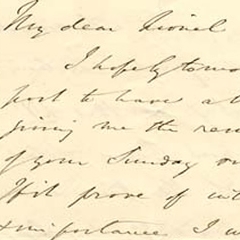 My dear Lionel
I hope by tomo
post to have a l
giving me the res
of your Sunday
If it prove of int
& importance I w